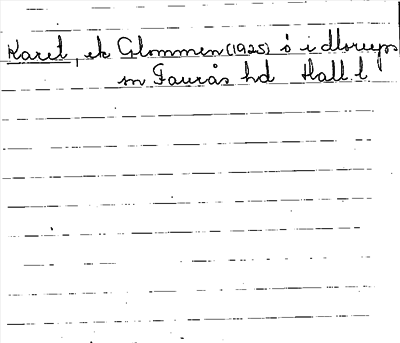 Karet, ek Glommen (1925) ö i Morups
sn Faurås hd Hall l